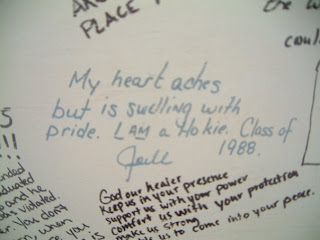 PLACE
the
My heart aches
but is swelling with
pride. I AM a Hokie. Class of
1988.
!!!
and he
violated
You don't
when
you
is
God our healer
Keep us in your presence
support us with your power
comfort us with your protection
make us strong
us to come into your peace.